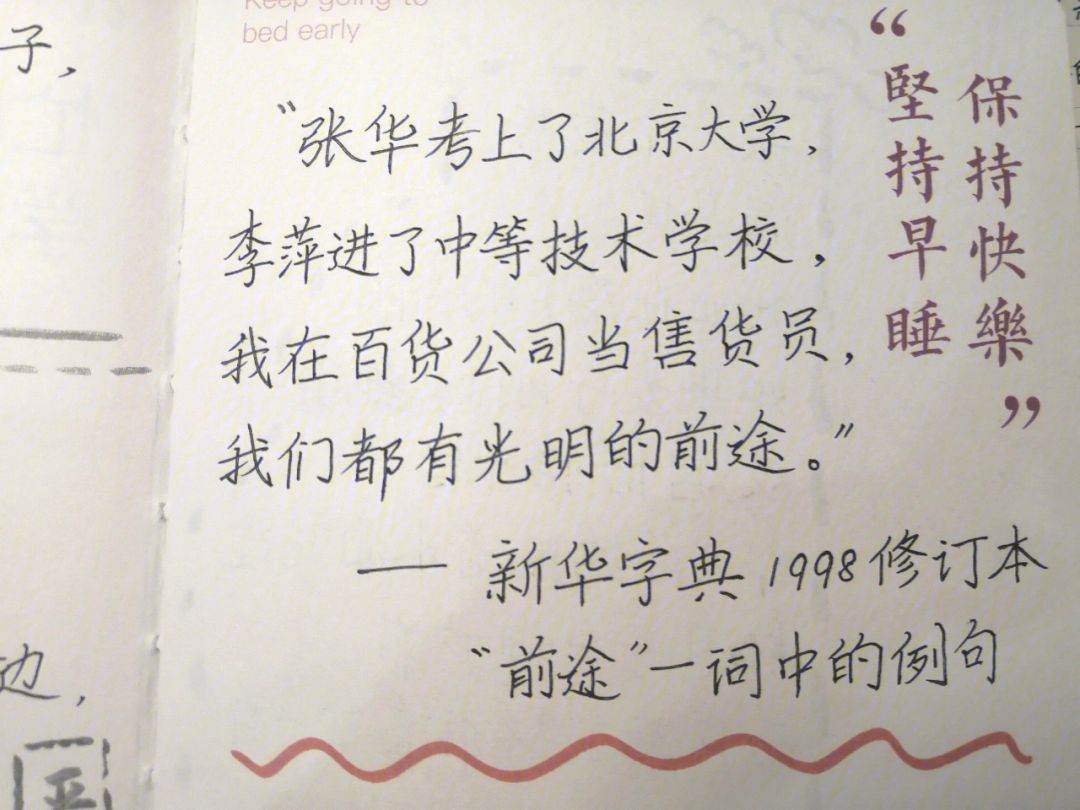 Keep going to
bed early
子，
“张华考上了北京大学，
李萍进了中等技术学校，
我在百货公司当售货员，
我们都有光明的前途。”
—— 新华字典1998修订本
“前途”一词中的例句
“
保持快樂
堅持早睡
”
边，